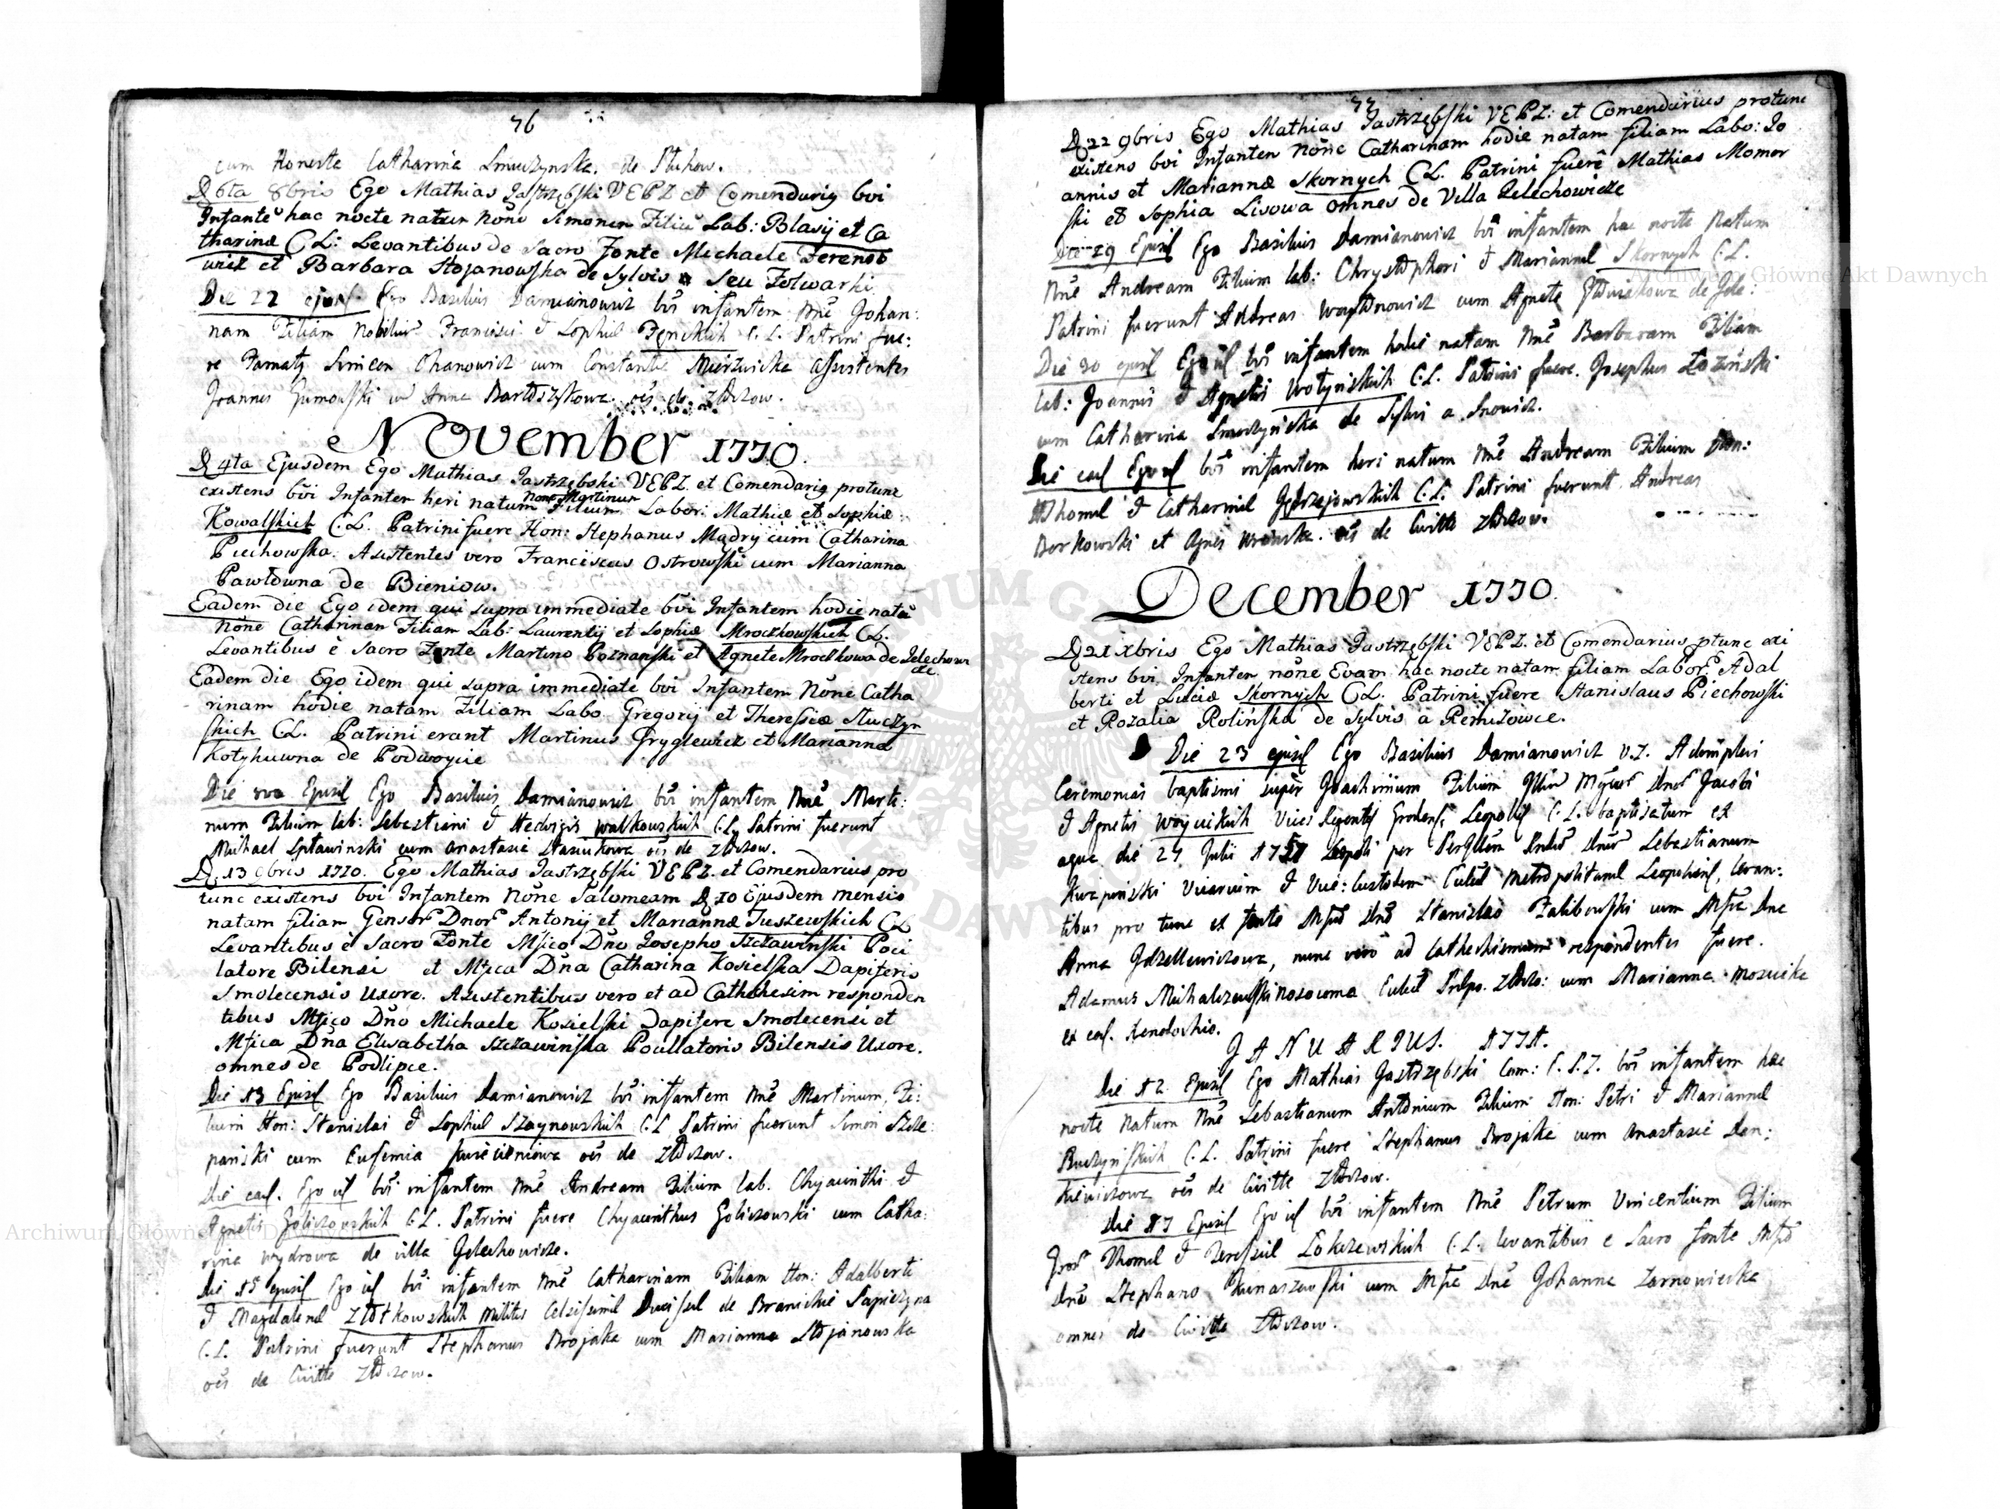 76
cum Honeste Catharina Smuczynska de Pluhow.
D 6ta 8bris Ego Mathias Jastrzębski VEPZ et Comendariq bvi
Infante hac nocte natum none Simonem Filiu Lab: Blasij et Ca
tharinæ CL: Levantibus de Sacro Fonte Michaele Ferenso
wicz et Barbara Stojanowska de Sylvis Seu Folwarki
Die 22 ejusd. Ego Basilius Damianowicz bvi infantem Nne Johan:
nam Filiam Nobiliu Francisci & Sophiæ C.L. Patrini fue:
re Famatq Simeon Ohanowicz cum Constantia Mierzwicka assistentes
Joannes Gumowski cu Anna Bartoszykowa oes de Złoczow.
November 1770.
D 4ta Ejusdem Ego Mathias Jastrzębski VEPZ et Comendariq protunc
existens bvi Infanten heri natum None Martinum Filium Labor: Mathiæ et Sophiæ
Kowalskich CL. Patrini fuere Hon: Stephanus Mądry cum Catharina
Piechowska. Asistentes vero Franciscus Ostrowski cum Marianna
Pawłowna de Bieniow.
Eadem die Ego idem qui supra immediate bvi Infantem hodie natã
none Catharinan Filiam Lab: Laurentij et Sophiæ Mroczkowskich CL.
Levantibus è Sacro Fonte Martino Poznański et Agnete Mroczkowa de Jelechow
cze.
Eadem die Ego idem qui supra immediate bvi Infantem None Catha
rinam hodie natam Filiam Labo. Gregorij et Theressiæ Stuczyn
skich CL. Patrini erant Martinus Gryglewicz et Marianna
Kotyhuwna de Podwoycie
Die 8va Ejusd Ego Basilius Damianowicz bvi infantem Nne Marti:
num Filium Lab: Sebastiani & Hedvigis Walkowskich C.L. Patrini fuerunt
Michael Spławinski cum Anastasia Stasiukowa oes de Złoczow.
D. 13 9bris 1770. Ego Mathias Jastrzębski VEPZ. et Comendarius pro
tunc existens bvi Infantem None Salomeam D 10 Ejusdem mensis
natam filiam Gensor Dnor Antonij et Mariannæ Juszewskich CL
Levantibus è Sacro Fonte Mfico Dno Josepho Szczawinski Poci
latore Bilensi et Mfica Dna Catharina Kosielska Dapiferis
Smolecensis Uxore. Asistentibus vero et ad Cathehesim responden
tibus Mfico Dno Michaele Kosielski Dapifere Smolecensi et
Mfica Dna Elisabetha Szczawińska Pocillatoris Bilensis Uxore.
omnes de Podlipce.
Die 13 Ejusd Ego Basilius Damianowicz bvi infantem Nne Martinum, Fi:
lium Hon: Stanislai & Sophiæ Szaynowskich C.L. Patrini fuerunt Simon Szcze:
panski cum Eufemia oes de Złoczow.
Die ead. Ego id bvi infantem Nne Andream Filium Lab. Chyacinthi &
Agnetis Goliczowskich C.L. Patrini fuere Chyacinthus Goliczowski cum Catha:
rina Wydrowa de villa Jelechowicze.
Die 15 ejusd Ego id bvi infantem Nne Catharinam Filiam Hon: Adalberti
& Magdalenæ Złotkowskich militis Celsissimæ Ducissæ de Branickie Sapiezyna
C.L. Patrini fuerunt Stephanus Brojaka cum Marianna Stojanowska
oes de Civitte Złoczow.
77
D 22 9bris Ego Mathias Jastrzębski VEPZ: et Comendarius protunc
existens bvi Infanten None Catharinam hodie natam filiam Labo: Jo
annis et Mariannæ Skornych CL. Patrini fuere Mathias Momor
ski et Sophia Lisowa omnes de Villa Jelechowicze
Die 29 Ejusd Ego Basilius Damianowicz bvi infantem hac nocte Natum
Nne Andream Filium Lab: Chrystophori & Mariannæ Skornych C.L.
Patrini fuerunt Andreas Woytonowicz cum Agnete de Jele:
Die 30 ejusd Ego id bvi infantem hodie natam Nne Barbaram Filiam
Lab: Joannis & Agnetis Wołyńskich C.L. Patrini fuere. Josephus Łoziński
cum Catharina Smuczyńska de Sylvis a Snowicz.
Die ead Ego id bvi infantem heri natum Nne Andream Filium Hon:
Thomæ & Catharinæ Jędrzejowskich C.L. Patrini fuerunt Andreas
Borkowski et Agnes Wronska. oes de Civitte Złoczow.
December 1770.
D 21 Xbris Ego Mathias Jastrzębski VEPZ. et Comendarius ptunc exi
stens bvi Infanten none Evam hac nocte natam filiam Labor Adal
berti et Luciæ Skornych CL. Patrini fuere Stanislaus Piechowski
et Rozalia Rolińska de Sylvis a Remizowce.
Die 23 ejusd Ego Basilius Damianowicz V.Z. Adimplevi
Ceremonias baptismi super Joachimum Filium Mgcor Dnor Jacobi
& Agnetis Woycickich Vices Regentis Grodensi Leopolis C.L. baptisatum ex
aqua die 24 Julii Leopoli per Dnum Sebastianum
Vicarium & Vice: Custodem Eccle Metropolitanæ Leopoliens, levan:
tibus pro tunc ex fonte Mfco Dno Stanislao Zalibowski cum Mfca Dna
Anna Jdzellewiczowa, nunc vero ad Cathechismum respondentes fuere.
Adamus Michalczewski nosocoma Eccle Prepo. Złoczo: cum Marianna Moznicka
ex eod. Xenodochio.
JANUARIUS. 1771.
Die 12 Ejusd Ego Mathias Jastrzębski Com: C.S.Z. bvi infantem hac
nocte natum Nne Sebastianum Antonium Filium Hon: Petri & Mariannæ
Ruczyńskich C.L. Patrini fuere Stephanus Brojaka cum Anastasia Den:
kiewiczowa oes de Civitte Złoczow.
Die 17 Ejusd Ego id bvi infantem Nne Petrum Vincentium Filium
Thomæ & Teressiæ Lokczewskich C.L. levantibus e Sacro fonte Mfco
Dno Stephano Kunaszewski cum Mfca Dna Johanna Zarnowiecka
omnes de Civitte Złoczow.
Archiwum Główne Akt Dawnych
Archiwum Główne Akt Dawnych